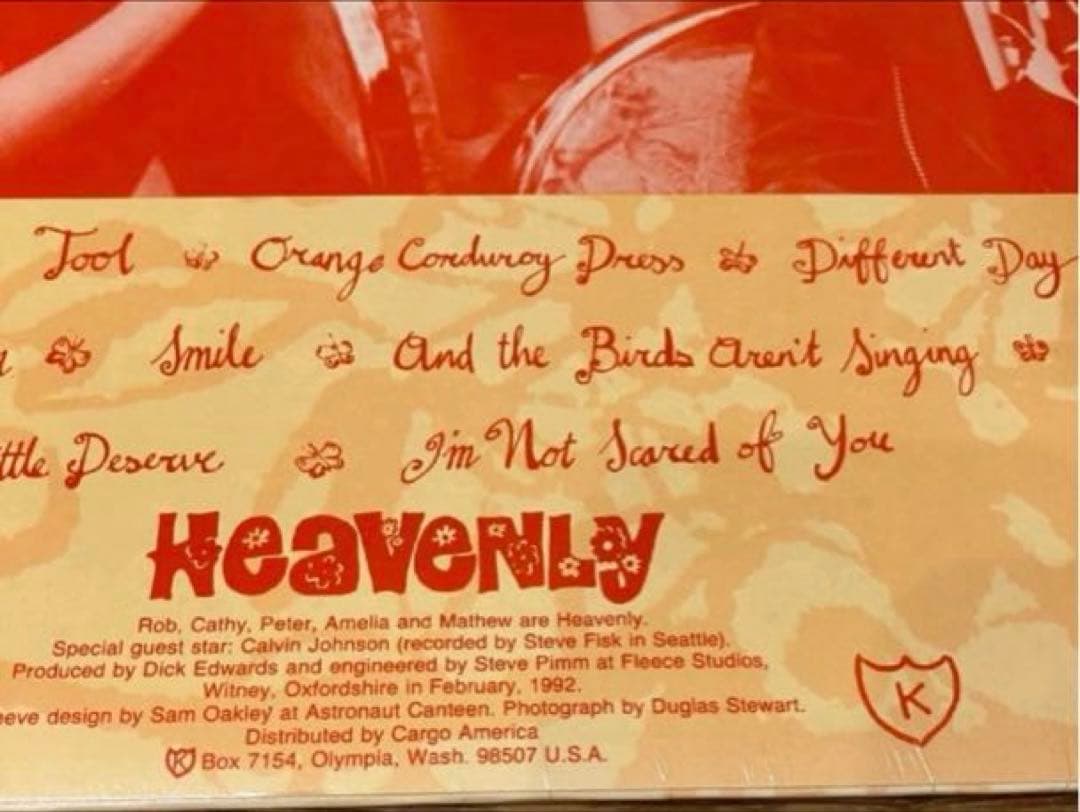 Tool Orange Corduroy Dress Different Day
Smile And the Birds Aren't Singing
ttle Deserve I'm Not Scared of You
HeaVeNLy
Rob, Cathy, Peter, Amelia and Mathew are Heavenly.
Special guest star: Calvin Johnson (recorded by Steve Fisk in Seattle).
Produced by Dick Edwards and engineered by Steve Pimm at Fleece Studios,
Witney, Oxfordshire in February, 1992.
eeve design by Sam Oakley at Astronaut Canteen. Photograph by Duglas Stewart.
Distributed by Cargo America
K Box 7154, Olympia, Wash. 98507 U.S.A.
K